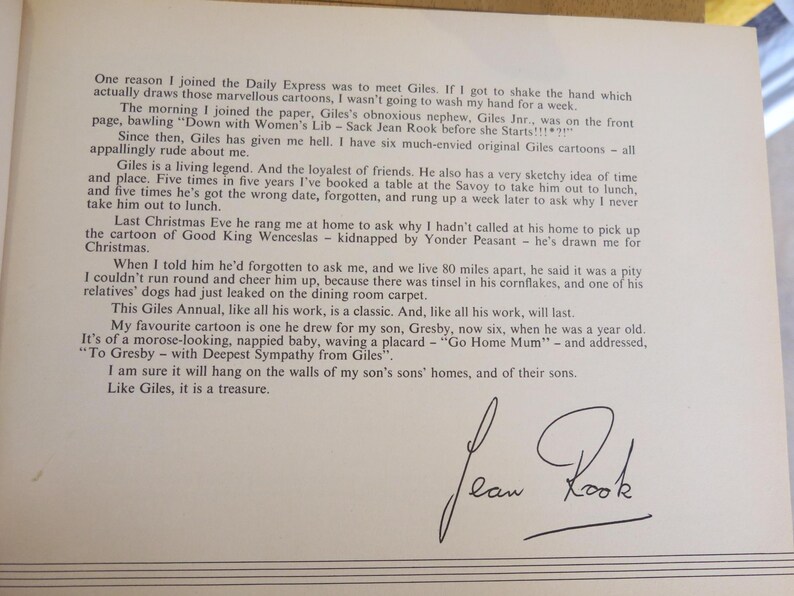 One reason I joined the Daily Express was to meet Giles. If I got to shake the hand which
actually draws those marvellous cartoons, I wasn't going to wash my hand for a week.
The morning I joined the paper, Giles's obnoxious nephew, Giles Jnr., was on the front
page, bawling "Down with Women's Lib – Sack Jean Rook before she Starts!!!*?!"
Since then, Giles has given me hell. I have six much-envied original Giles cartoons – all
appallingly rude about me.
Giles is a living legend. And the loyalest of friends. He also has a very sketchy idea of time
and place. Five times in five years I've booked a table at the Savoy to take him out to lunch,
and five times he's got the wrong date, forgotten, and rung up a week later to ask why I never
take him out to lunch.
Last Christmas Eve he rang me at home to ask why I hadn't called at his home to pick up
the cartoon of Good King Wenceslas – kidnapped by Yonder Peasant – he's drawn me for
Christmas.
When I told him he'd forgotten to ask me, and we live 80 miles apart, he said it was a pity
I couldn't run round and cheer him up, because there was tinsel in his cornflakes, and one of his
relatives' dogs had just leaked on the dining room carpet.
This Giles Annual, like all his work, is a classic. And, like all his work, will last.
My favourite cartoon is one he drew for my son, Gresby, now six, when he was a year old.
It's of a morose-looking, nappied baby, waving a placard – "Go Home Mum" – and addressed,
"To Gresby – with Deepest Sympathy from Giles".
I am sure it will hang on the walls of my son's sons' homes, and of their sons.
Like Giles, it is a treasure.
Jean Rook